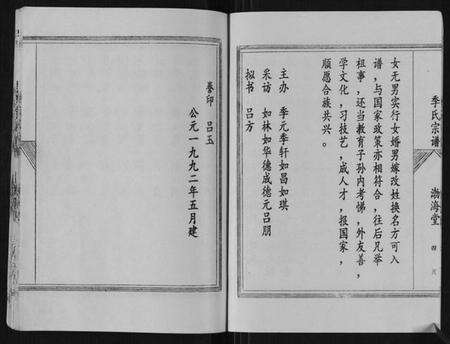 季氏宗谱
渤海堂
女无男实行女婚男嫁改姓换名方可入
谱，与国家政策亦相符合，往后凡举
祖事，还当教育子孙内考悌，外友善，
学文化，习技艺，成人才，报国家，
顺愿合族共兴。
主办 季元季轩如昌如琪
采访 如林如华德成德元吕朋
拟书 吕方
誊印 吕玉
公元一九九二年五月建